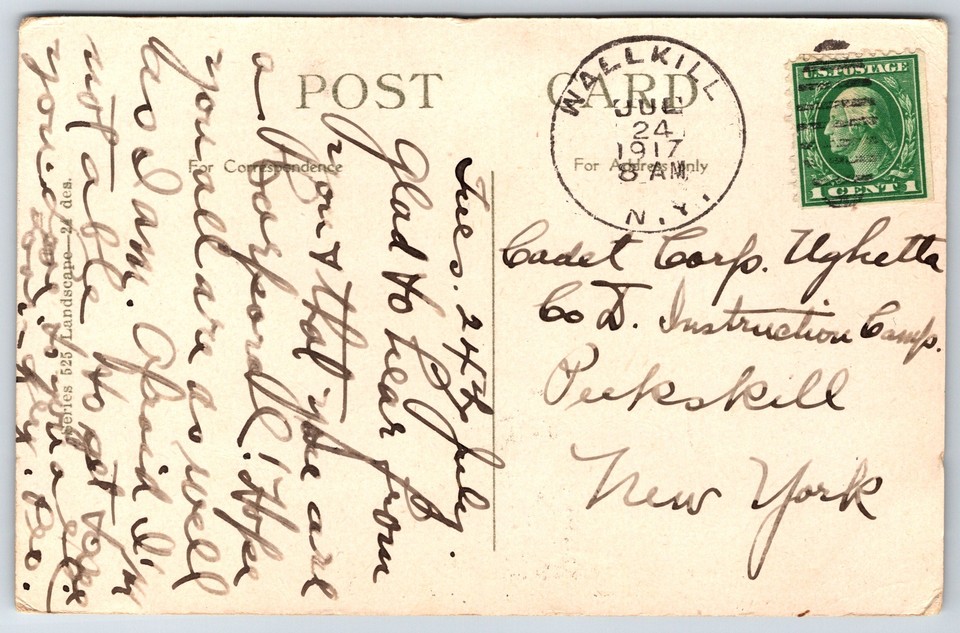 POST CARD
For Correspondence
For Address Only
WALLKILL
JUL
24
1917
8 AM
N.Y.
U.S. POSTAGE
1 CENT 1
Cadet Corp. Ughetta
Co D. Instruction Camp.
Peekskill
New York
Tues. 24th July.
Glad to hear from
you & that you are
a Corporal! Hope
you all are as well
as I am. Afraid I'm
not able to get to
Series 525 Landscape—24 des.